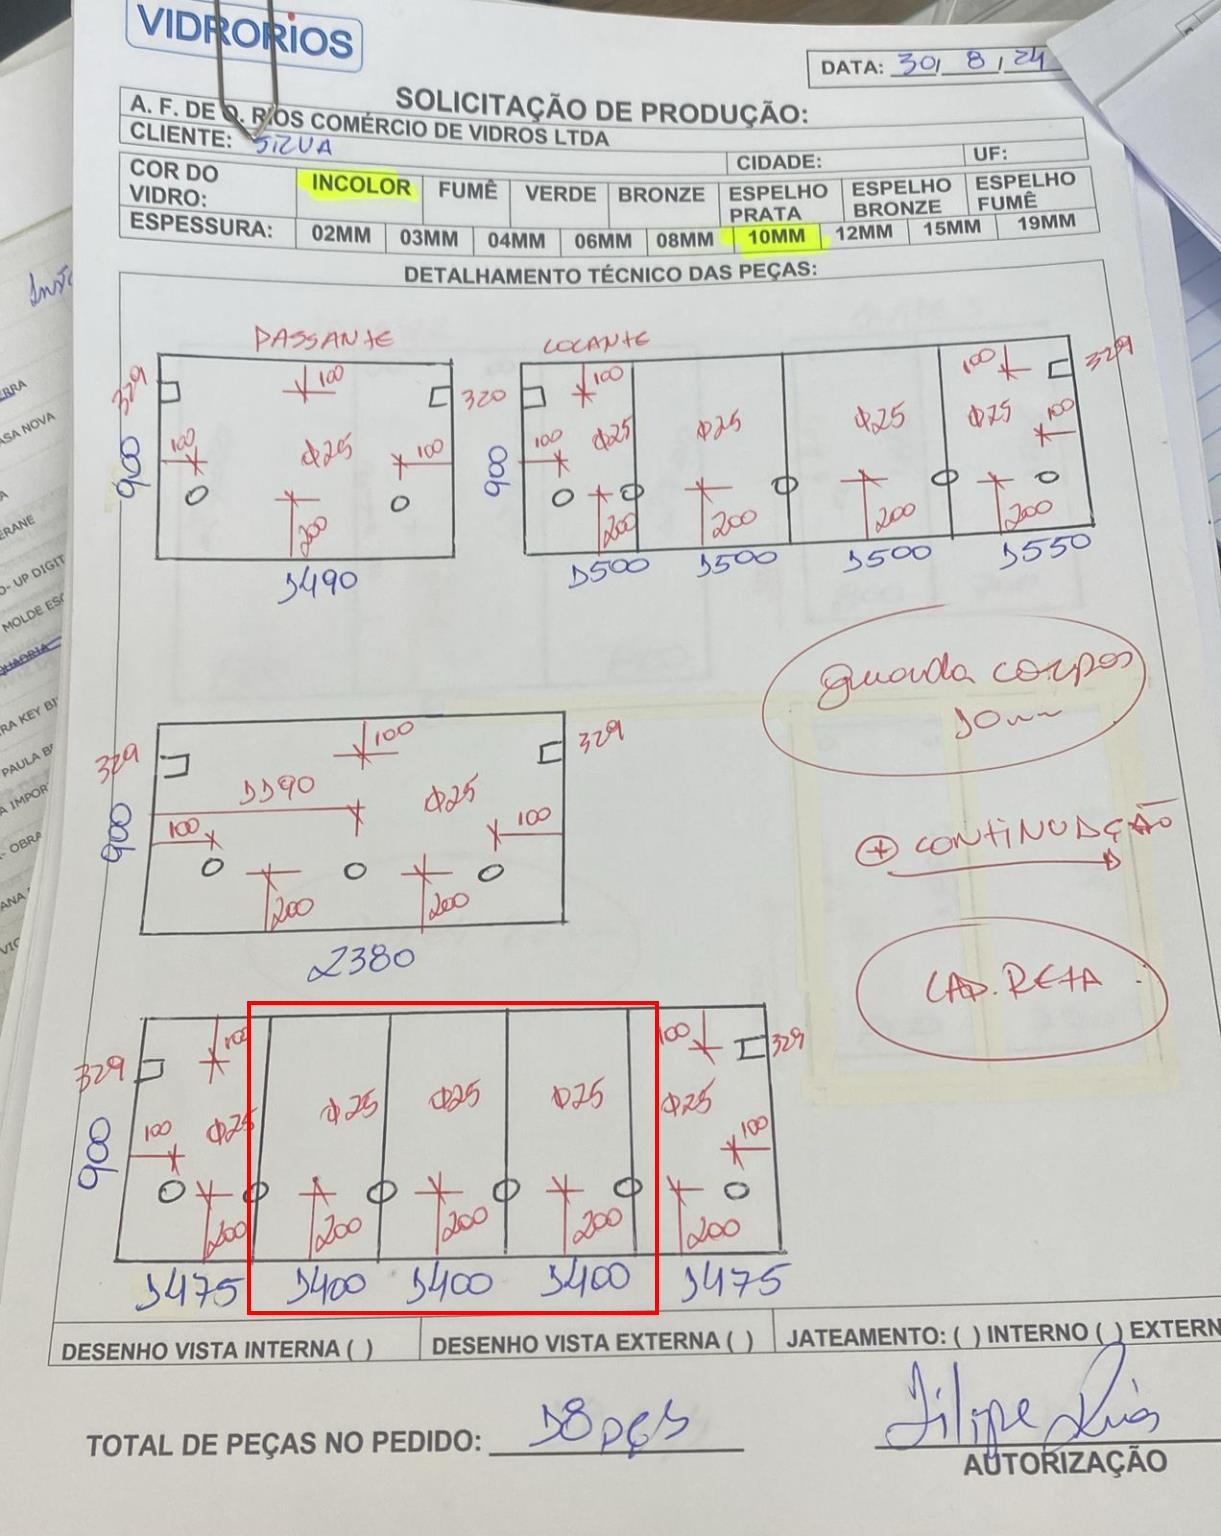 VIDRORIOS
DATA: 30/ 8 / 24
SOLICITAÇÃO DE PRODUÇÃO:
A. F. DE O. RIOS COMÉRCIO DE VIDROS LTDA
CLIENTE: SILVA
CIDADE: UF:
COR DO VIDRO: INCOLOR FUMÊ VERDE BRONZE ESPELHO PRATA ESPELHO BRONZE ESPELHO FUMÊ
ESPESSURA: 02MM 03MM 04MM 06MM 08MM 10MM 12MM 15MM 19MM
DETALHAMENTO TÉCNICO DAS PEÇAS:
PASSANTE
329 100 320
900 100 Φ25 100
200
1490
LOCANTE
100 100 329
900 100 Φ25 Φ25 Φ25 Φ25 100
200 200 200 200
1500 1500 1500 1550
guarda corpos
10mm
329 100 329
1190 Φ25
900 100 100
200 200
2380
+ CONTINUAÇÃO
LAP. RETA
329 100 100 329
900 100 Φ25 Φ25 Φ25 Φ25 Φ25 100
200 200 200 200 200
1475 1400 1400 1400 1475
DESENHO VISTA INTERNA ( ) DESENHO VISTA EXTERNA ( ) JATEAMENTO: ( ) INTERNO ( ) EXTERN
TOTAL DE PEÇAS NO PEDIDO: 18 pçs
Filipe Rios
AUTORIZAÇÃO
ERRA
ASA NOVA
ERANE
O- UP DIGIT
MOLDE ES
QUADRIA
RA KEY BI
PAULA B
A IMPOR
- OBRA
ANA